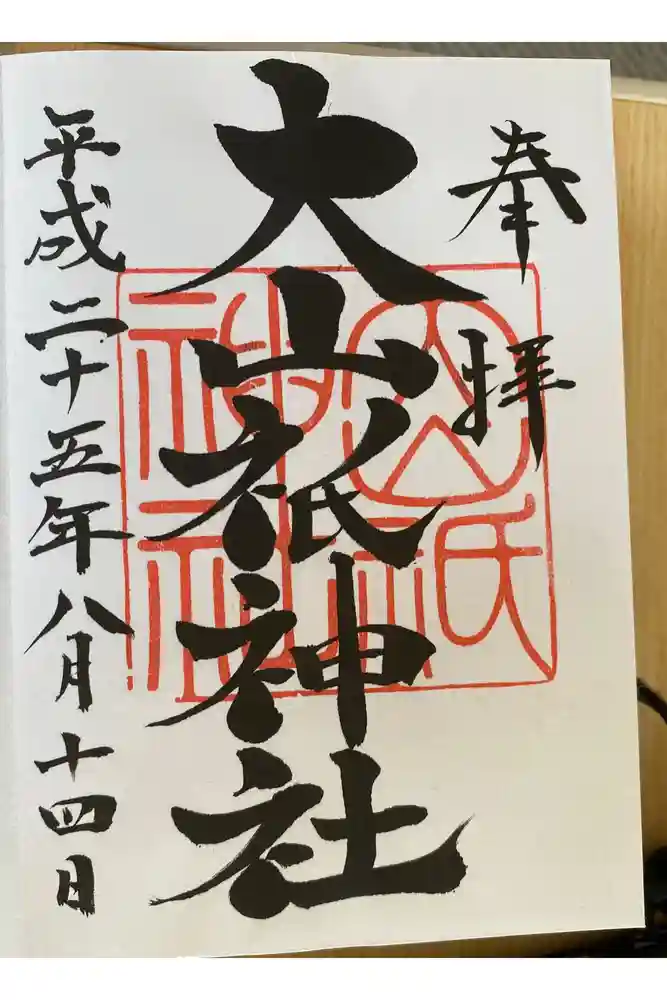 奉拝
大山祇神社
平成二十五年八月十四日
大山祇神社